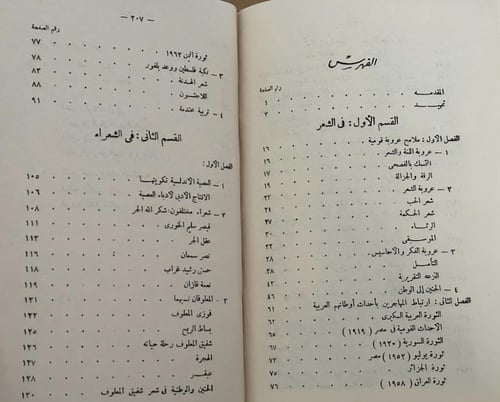 الفهرس
رقم الصفحة
المقدمه ١
تمهيد ٢
القسم الأول : فى الشعر
الفصل الأول : ملامح عروبة قومية ١٦
١ — عروبة اللغة والشعر ١٦
التمسك بالفصحى ١٦
الرقة والجزالة ١٧
٢ — عروبة الشعر
شعر الحب
شعر الحكمة
الرثاء
الموسيقى
٣ — عروبة الفكر والأحاسيس
التأمل
النزعه التقريرية
٤ — الحنين إلى الوطن
الفصل الثانى : ارتباط المهاجرين بأحداث أوطانهم العربية
الثورة العربية الكبرى
الأحداث القومية فى مصر ( ١٩١٩ ) ٦٥
الثورة السورية ( ١٩٣٠ ) ٦٧
ثورة يوليو ( ١٩٥٢ ) مصر ٧١
ثورة الجزائر ٧٥
ثورة العراق ( ١٩٥٨ ) ٧٦
— ٢٠٧ —
رقم الصفحة
ثورة اليمن ١٩٦٢ ٧٧
٣ — نكبة فلسطين ووعد بلفور ٧٨
شعر الهدنة ٨٣
اللاجئون ٨٨
٤ — تربية مختدمة ٩١
القسم الثانى : فى الشعراء
الفصل الأول :
١ — العصبة الاندلسية تكوينها ١٠٥
الانتاج الأدبى لأدباء العصبة ١٠٦
٢ — شعراء مختلفون : شكر الله الجر ١٠٨
قيصر سليم الخورى ١١١
عقل الجر ١١٣
نصر سمعان ١١٦
حسنى رشيد غراب ١١٨
نعمة قازان ١١٩
٣ — المعلوفان نسبهما ١٢١
فوزى المعلوف
بساط الريح
شفيق المعلوف رحلة حياته
الهجرة
عبقر ١٢٧
الحنين والوطنية فى شعر شفيق المعلوف ١٣٠